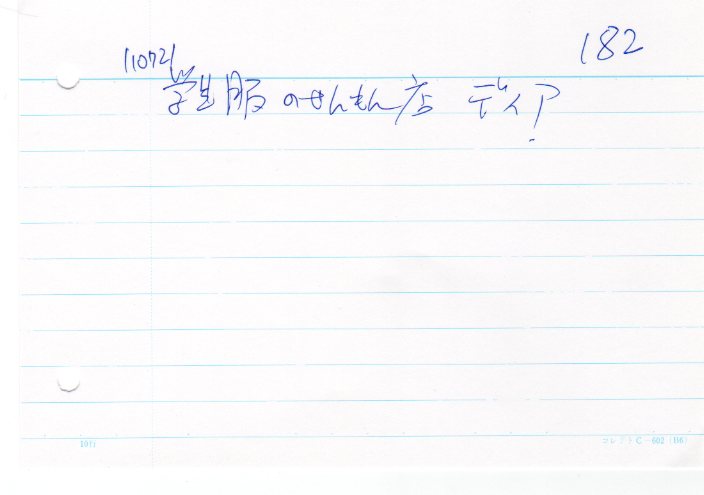 182
11072
学生服のせんもん店 ディア
コレクト C-602 (1!6)